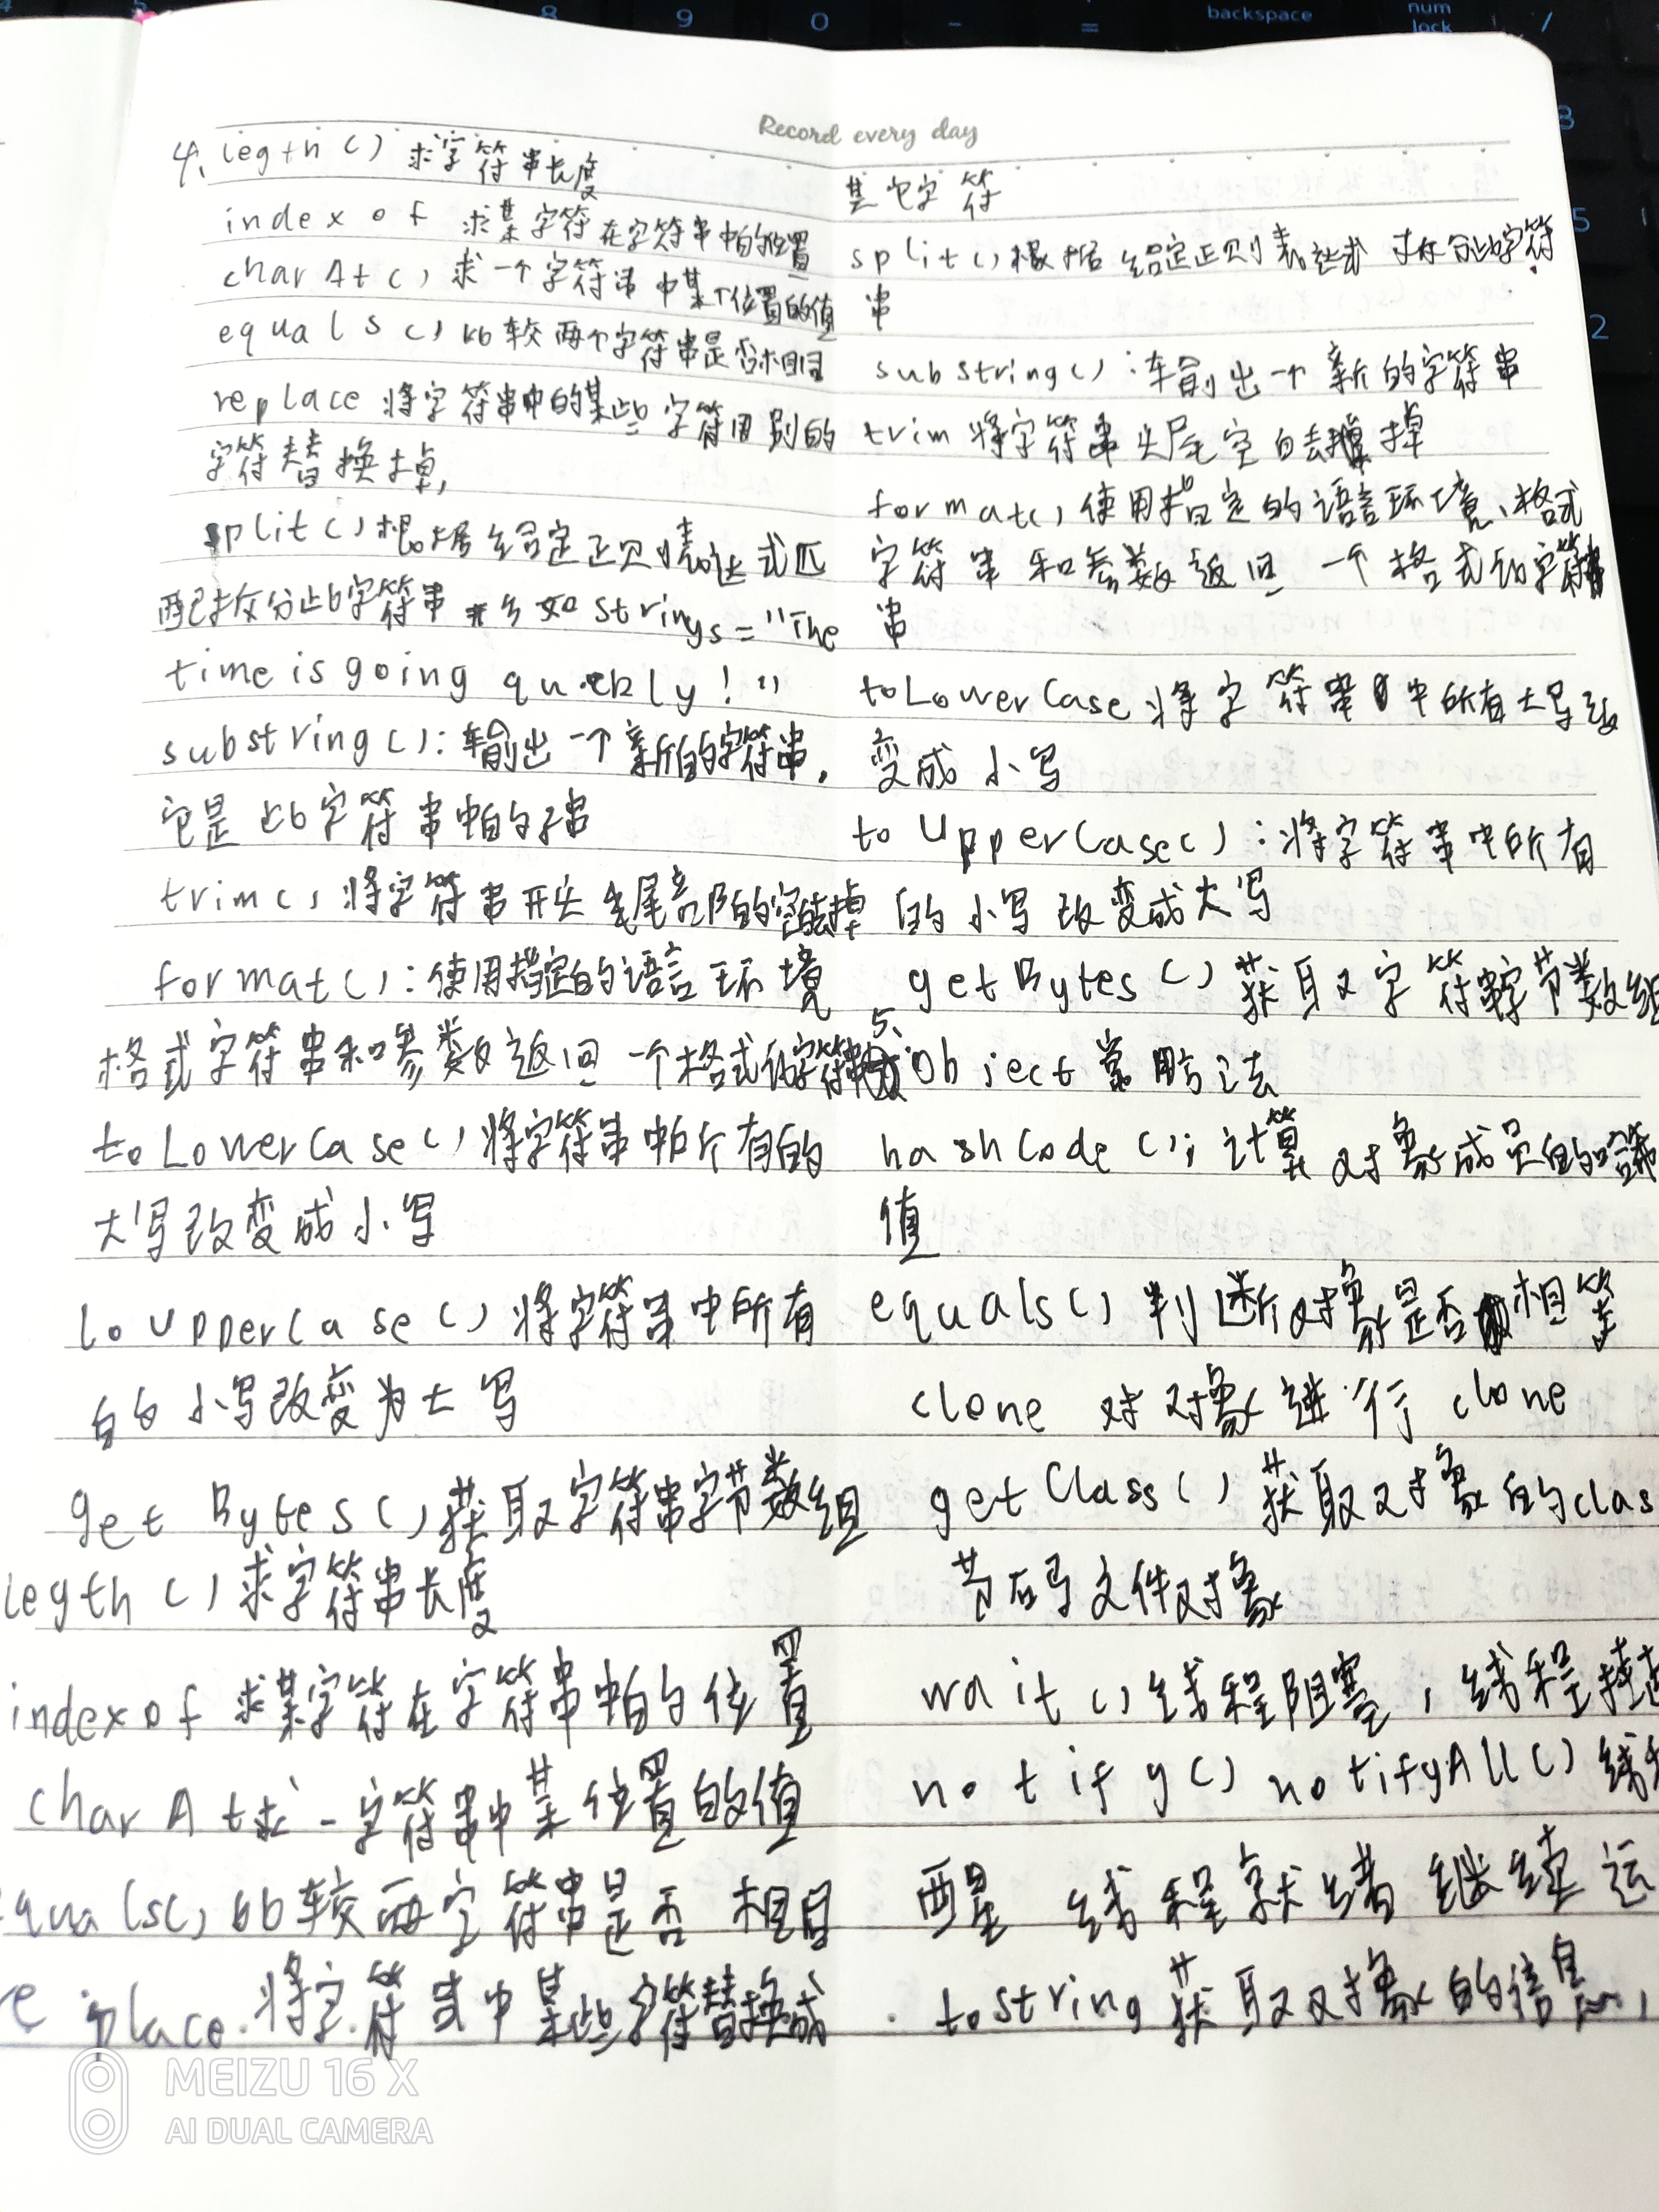 Record every day
4、legth() 求字符串长度
index of 求某字符在字符串中的位置
charAt() 求一个字符串中某个位置的值
equals() 比较两个字符串是否相同
replace 将字符串中的某些字符用别的
字符替换掉,
split() 根据给定正则表达式匹
配拆分此字符串 例如 String s = "The
time is going
substring(): 输出一个新的字符串,
它是此字符串中的子串
trim() 将字符串开头 尾部的空白去掉
format(): 使用指定的语言环境
格式字符串和参数返回一个格式化字符串
toLowerCase() 将字符串中所有的
大写改变成小写
toUpperCase() 将字符串中所有
的小写改变为大写
getBytes() 获取字符串字节数组
legth() 求字符串长度
indexof 求某字符在字符串中的位置
charAt 求一字符串中某位置的值
equals() 比较两字符串是否相同
replace 将字符串中某些字符替换成
其它字符
split() 根据给定正则表达式 拆分此字符
串
substring(): 输出一个新的字符串
trim 将字符串头尾空白去掉
format() 使用指定的语言环境、格式
字符串和参数返回一个格式化字符
串
toLowerCase 将字符串中所有大写改
变成小写
toUpperCase(): 将字符串中所有
的小写改变成大写
getBytes() 获取字符串字节数组
5、Object 常用方法
hashCode(); 计算对象成员的哈希
值
equals() 判断对象是否相等
clone 对对象进行clone
getClass() 获取对象的clas
节码文件对象
wait() 线程阻塞, 线程挂起
notify() notifyAll() 线
醒 线程就绪继续运
tostring 获取对象的信息,
backspace
num
lock
8
9
0
-
=
/
3
5
2
MEIZU 16 X
AI DUAL CAMERA